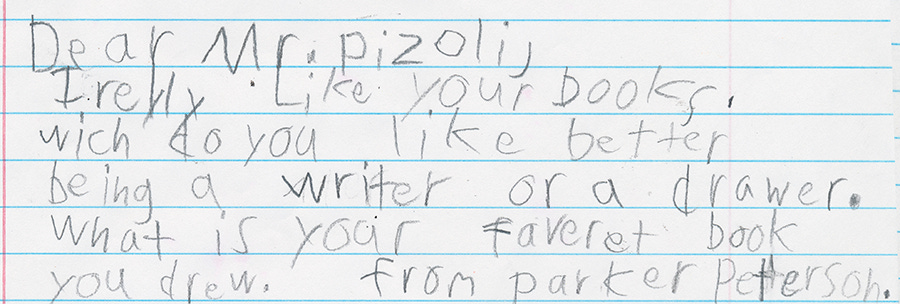 Dear Mr. pizoli,
I relly Like your books.
wich do you like better
being a writer or a drawer.
What is your faveret book
you drew. from parker Petterson.